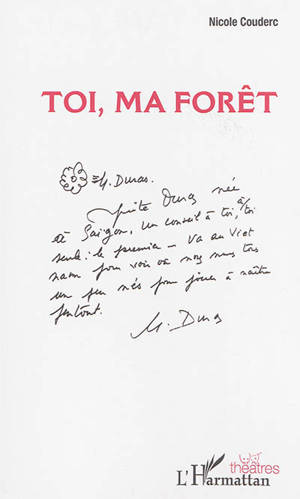 Nicole Couderc
TOI, MA FORÊT
M. Duras.
Duras née à
Saïgon, un conseil à toi, toi
seule : le premier – va au Viet
nam pour voir où nous nous tous
un peu nés pour jouer à naître
partout.
M. Duras
théâtres
L'Harmattan